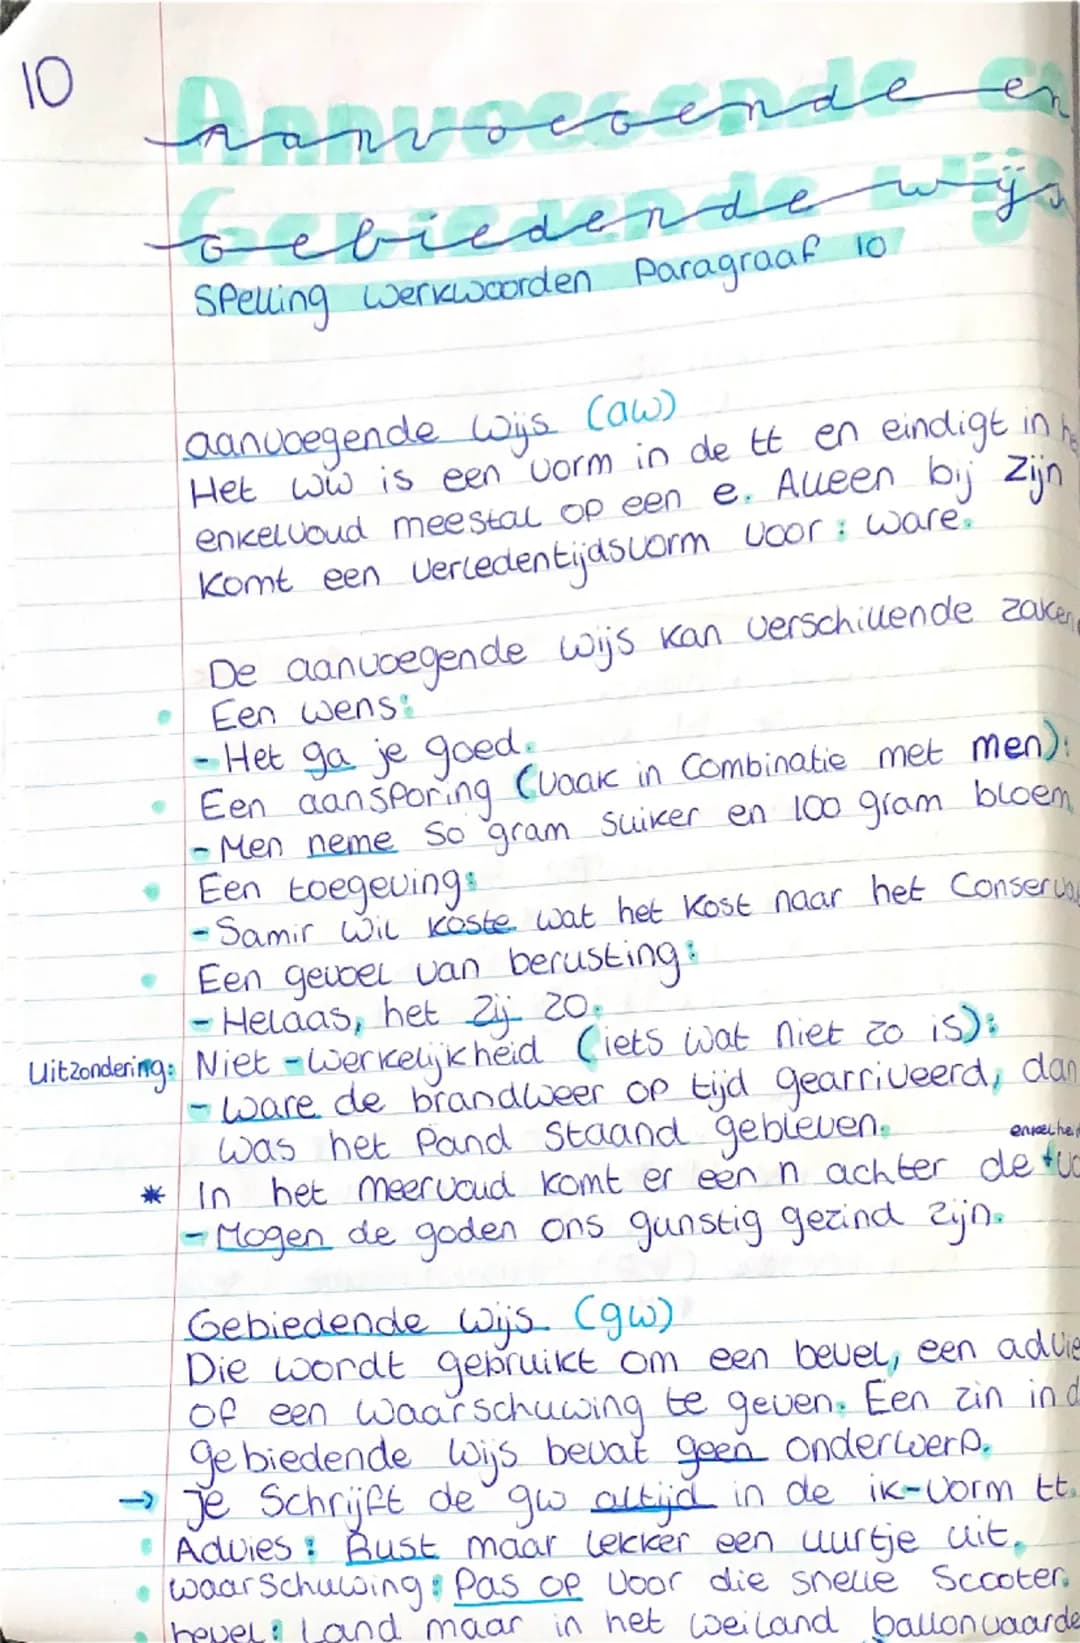 10
Aanvoegende en
Gebiedende wijs
Spelling werkwoorden Paragraaf 10
aanvoegende wijs (aw)
Het ww is een vorm in de tt en eindigt in
enkelvoud meestal op een e. Alleen bij zijn
komt een verledentijdsvorm voor: ware.
De aanvoegende wijs kan verschillende zaken
• Een wens:
- Het ga je goed.
• Een aansporing (vaak in combinatie met men):
- Men neme 50 gram suiker en 100 gram bloem
• Een toegeving:
- Samir wil koste wat het kost naar het
• Een gevoel van berusting:
- Helaas, het zij zo.
Uitzondering: Niet-werkelijkheid (iets wat niet zo is):
- Ware de brandweer op tijd gearriveerd, dan
was het pand staand gebleven.
* In het meervoud komt er een n achter de
- Mogen de goden ons gunstig gezind zijn.
Gebiedende wijs (gw)
Die wordt gebruikt om een bevel, een
of een waarschuwing te geven. Een zin in
gebiedende wijs bevat geen onderwerp.
→ Je schrijft de gw altijd in de ik-vorm tt.
• Advies: Rust maar lekker een uurtje uit.
• waarschuwing: Pas op voor die snelle scooter.
• bevel: Land maar in het weiland